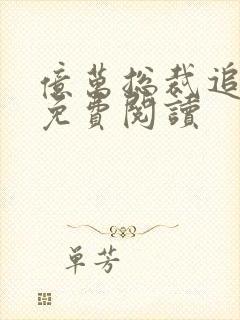 億萬総裁追
免費閱讀
单芳